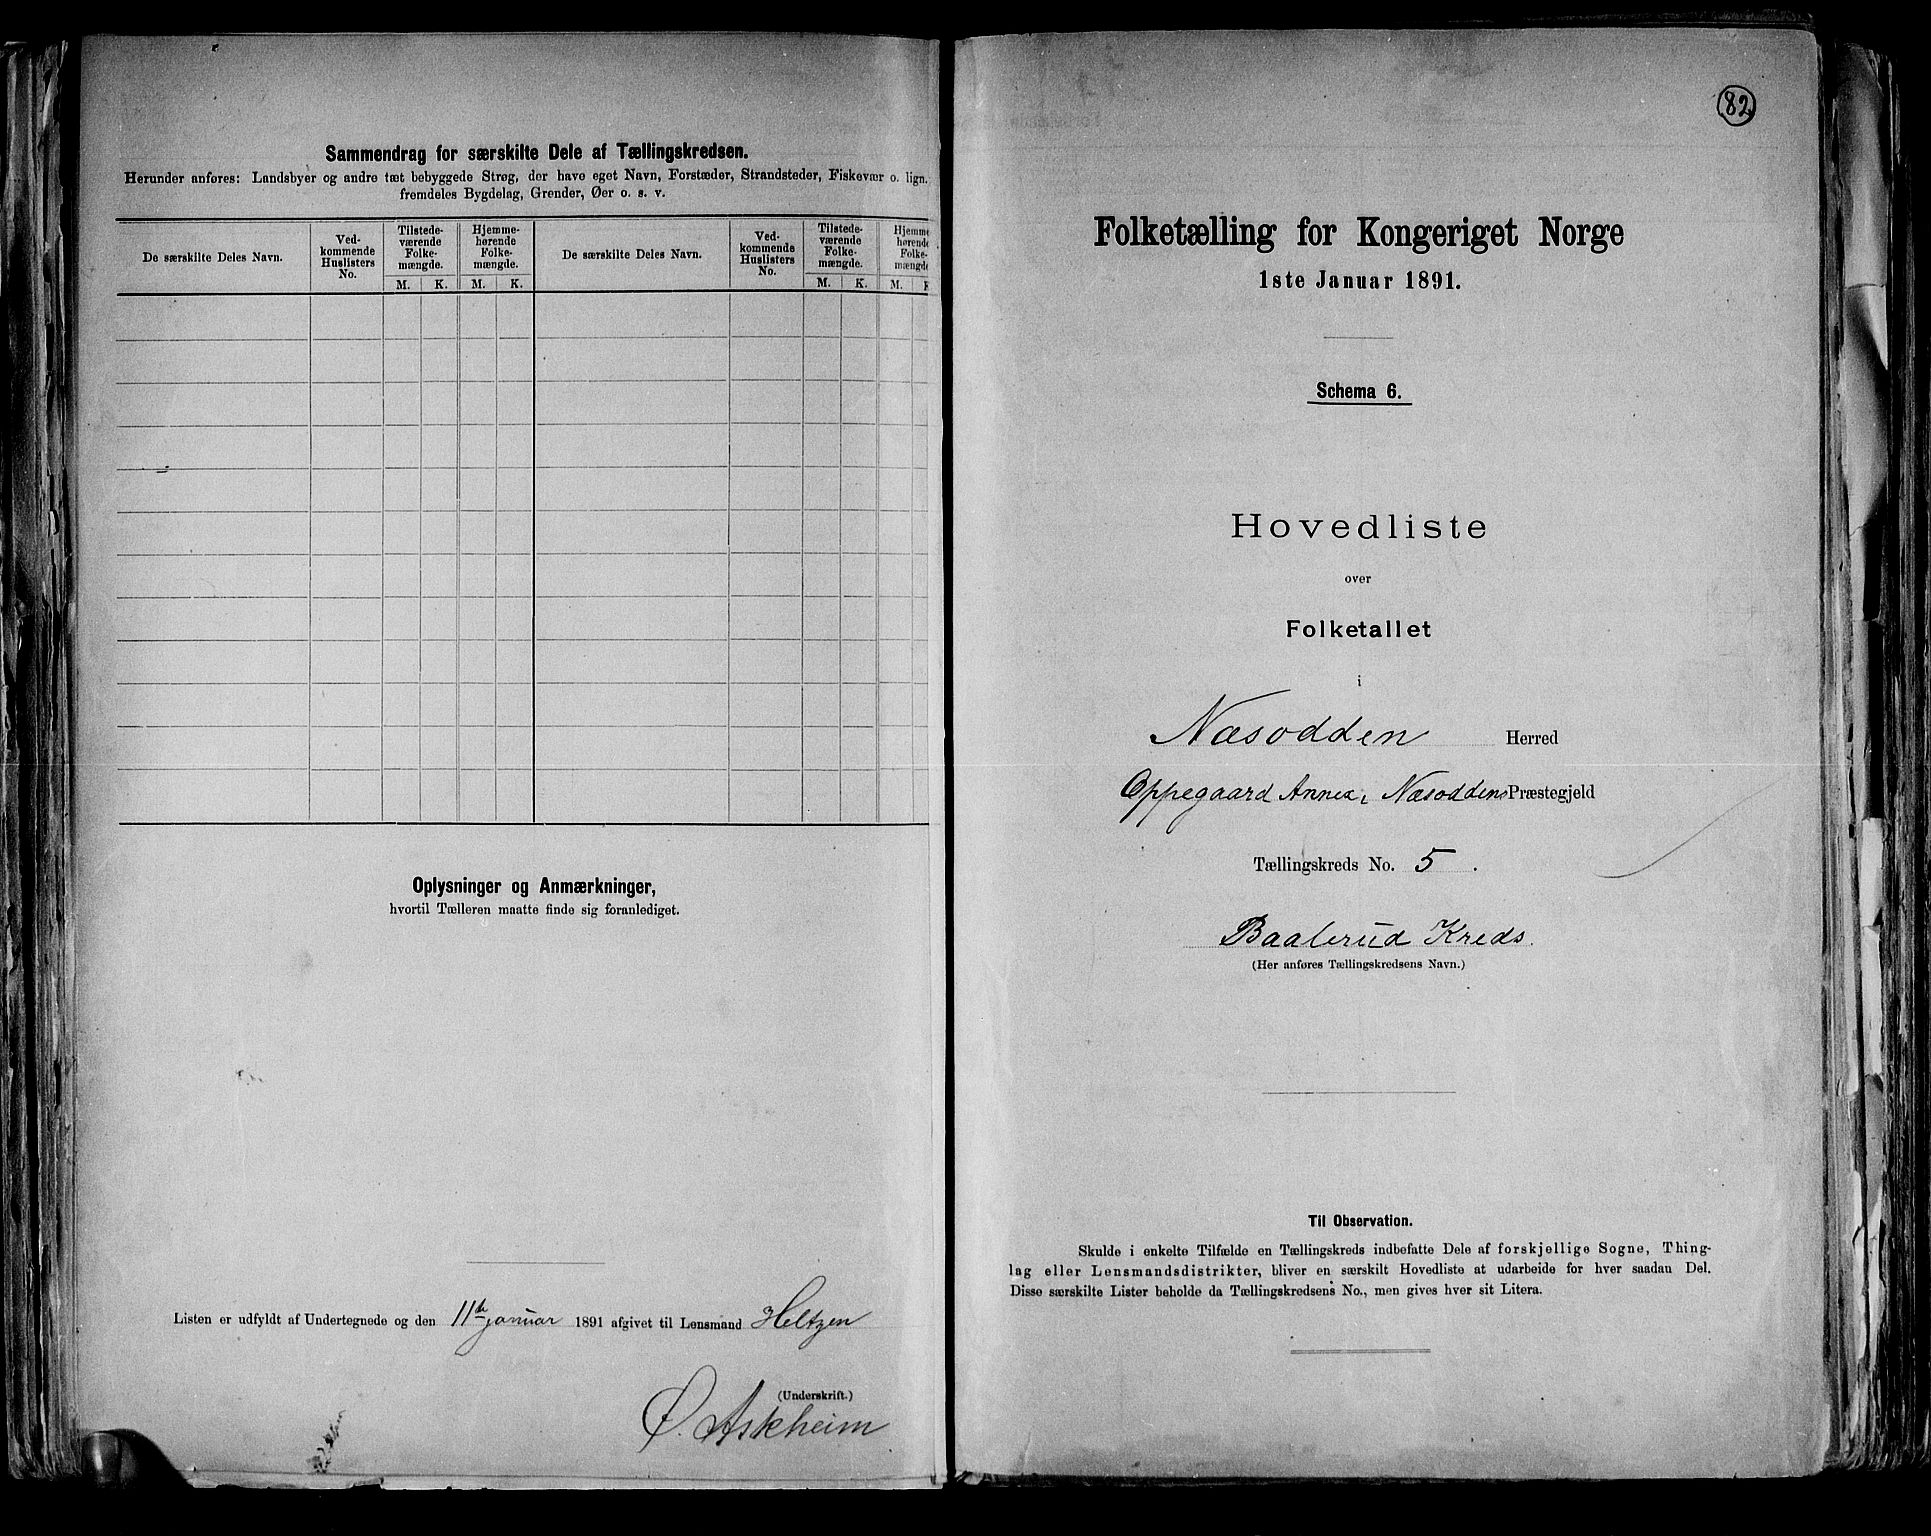 Sammendrag for særskilte Dele af Tællingskredsen.
Herunder anføres: Landsbyer og andre tæt bebyggede Strøg, der have eget Navn, Forstæder, Strandsteder, Fiskevær o. lign.
fremdeles Bygdelag, Grender, Øer o. s. v.
De særskilte Deles Navn.
Ved-
kommende
Huslisters
No.
Tilstede-
værende
Folke-
mængde.
Hjemme-
hørende
Folke-
mængde.
De særskilte Deles Navn.
Ved-
kommende
Huslisters
No.
Tilstede-
værende
Folke-
mængde.
Hjemme
hørende
Folke-
mængde
M. K. M. K. M. K. M.
Oplysninger og Anmærkninger,
hvortil Tælleren maatte finde sig foranlediget.
Listen er udfyldt af Undertegnede og den 11te januar 1891 afgivet til Lensmand Heltzen
(Underskrift.)
O. Askheim
82
Folketælling for Kongeriget Norge
1ste Januar 1891.
Schema 6.
Hovedliste
over
Folketallet
i
Næsodden Herred
Oppegaard Annex, Næsoddens Præstegjeld
Tællingskreds No. 5.
Baalerud Kreds.
(Her anføres Tællingskredsens Navn.)
Til Observation.
Skulde i enkelte Tilfælde en Tællingskreds indbefatte Dele af forskjellige Sogne, Thing-
lag eller Lensmandsdistrikter, bliver en særskilt Hovedliste at udarbeide for hver saadan Del.
Disse særskilte Lister beholde da Tællingskredsens No., men gives hver sit Litera.